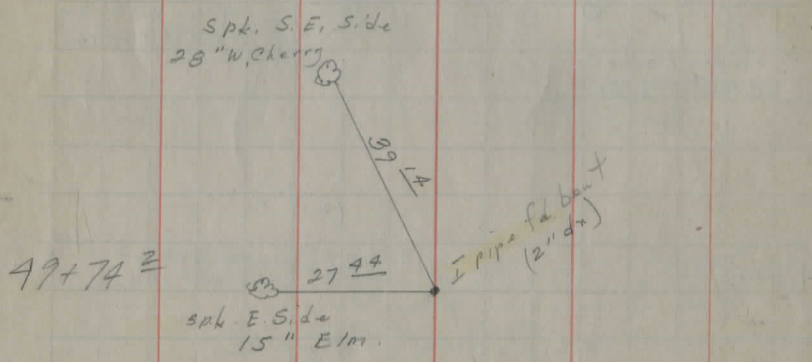 Spk. S.E. Side
28" W. Cherry
39 14
I pipe fd bent
(2" dn)
49+74 2
27 44
spk. E. Side
15" Elm.